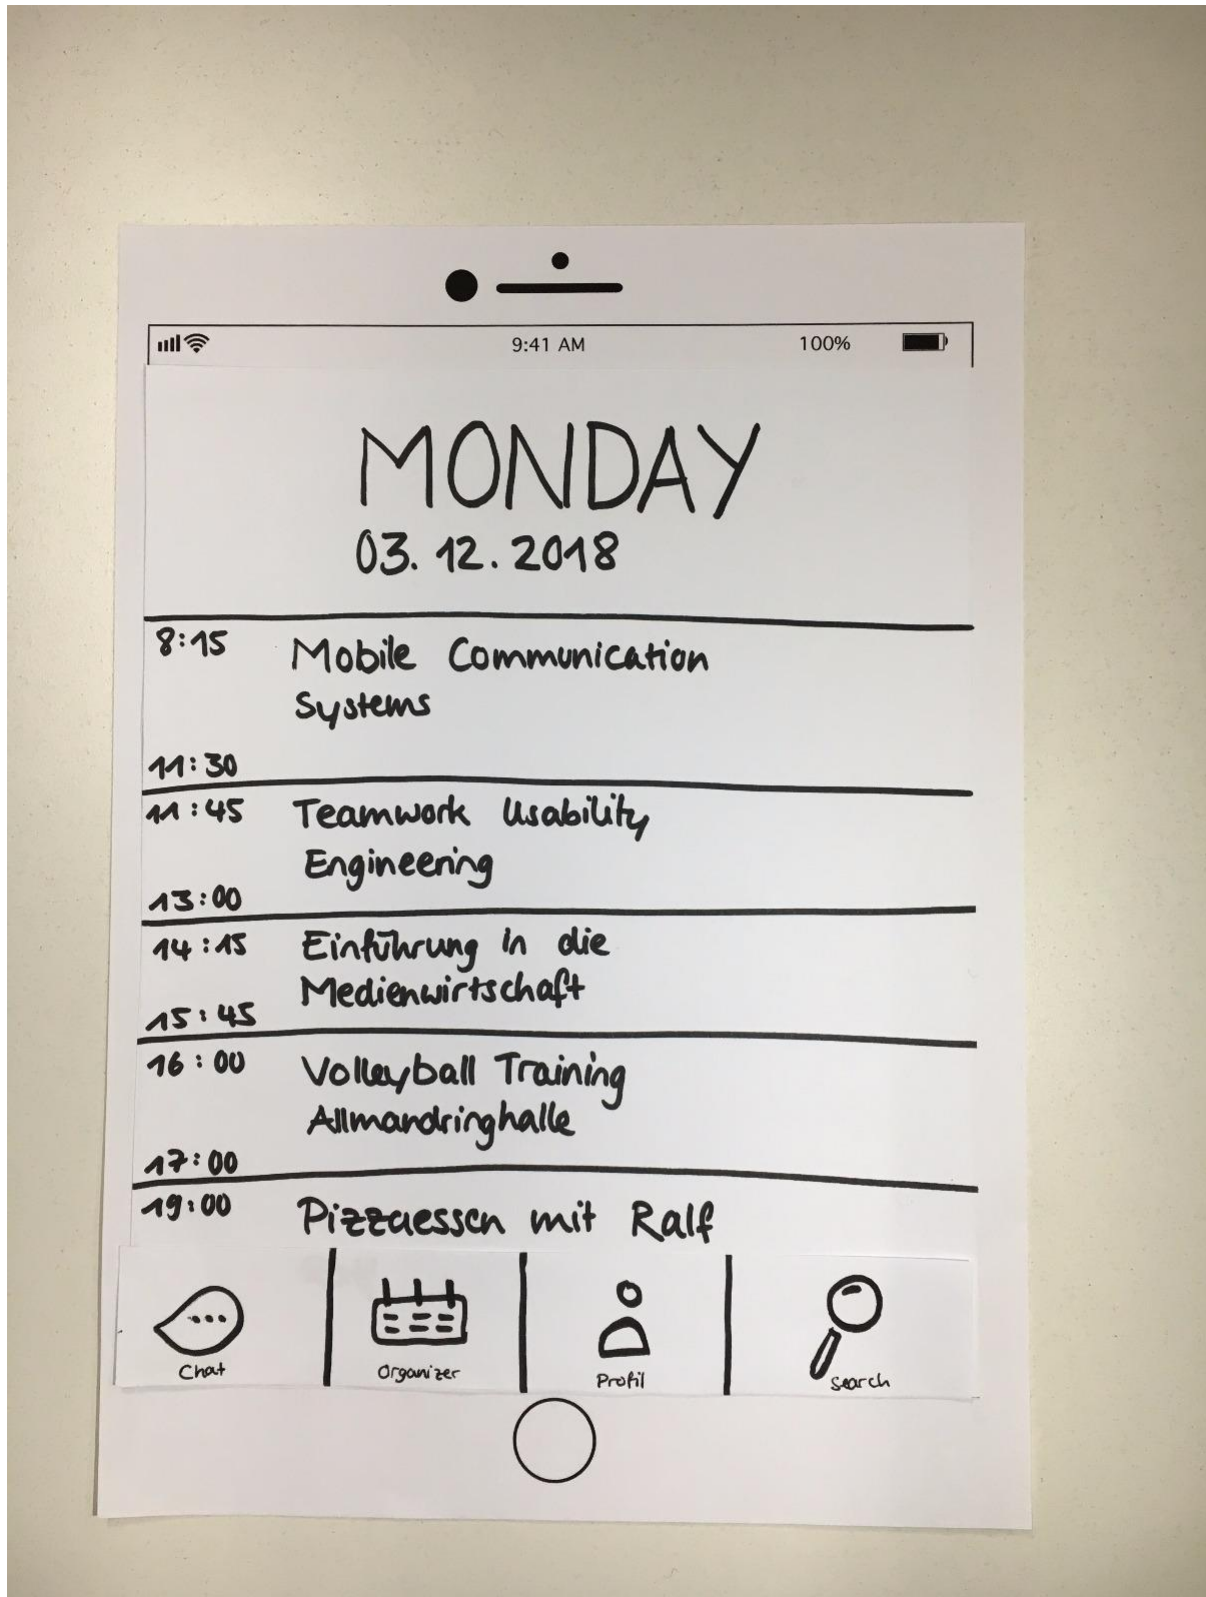 9:41 AM 100%
MONDAY
03.12.2018
8:15 Mobile Communication
Systems
11:30
11:45 Teamwork Usability
Engineering
13:00
14:15 Einführung in die
Medienwirtschaft
15:45
16:00 Volleyball Training
Allmandringhalle
17:00
19:00 Pizzaessen mit Ralf
Chat Organizer Profil Search